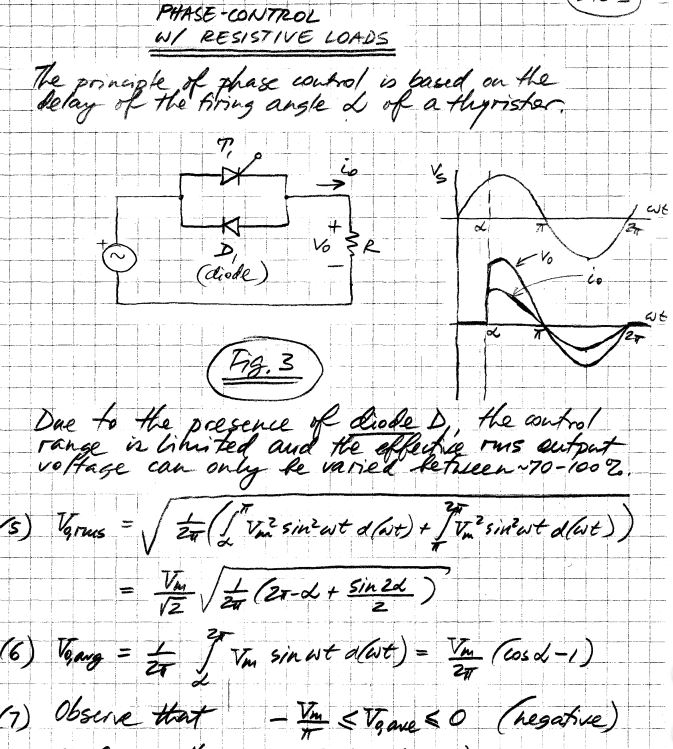 PHASE-CONTROL
W/ RESISTIVE LOADS
The principle of phase control is based on the
delay of the firing angle α of a thyristor.
T₁
i₀
D₁
(diode)
+
~
+
V₀
−
R
Vs
ωt
α
π
2π
V₀
i₀
ωt
α
π
2π
Fig. 3
Due to the presence of diode D₁, the control
range is limited and the effective rms output
voltage can only be varied between ~70-100%.
(5) V₀,rms = √(1/2π (∫_α^π Vm² sin²ωt d(ωt) + ∫_π^2π Vm² sin²ωt d(ωt)))
= Vm/√2 √(1/2π (2π-α + sin 2α/2))
(6) V₀,avg = 1/2π ∫_α^2π Vm sin ωt d(ωt) = Vm/2π (cos α - 1)
(7) Observe that - Vm/π ≤ V₀,ave ≤ 0 (negative)